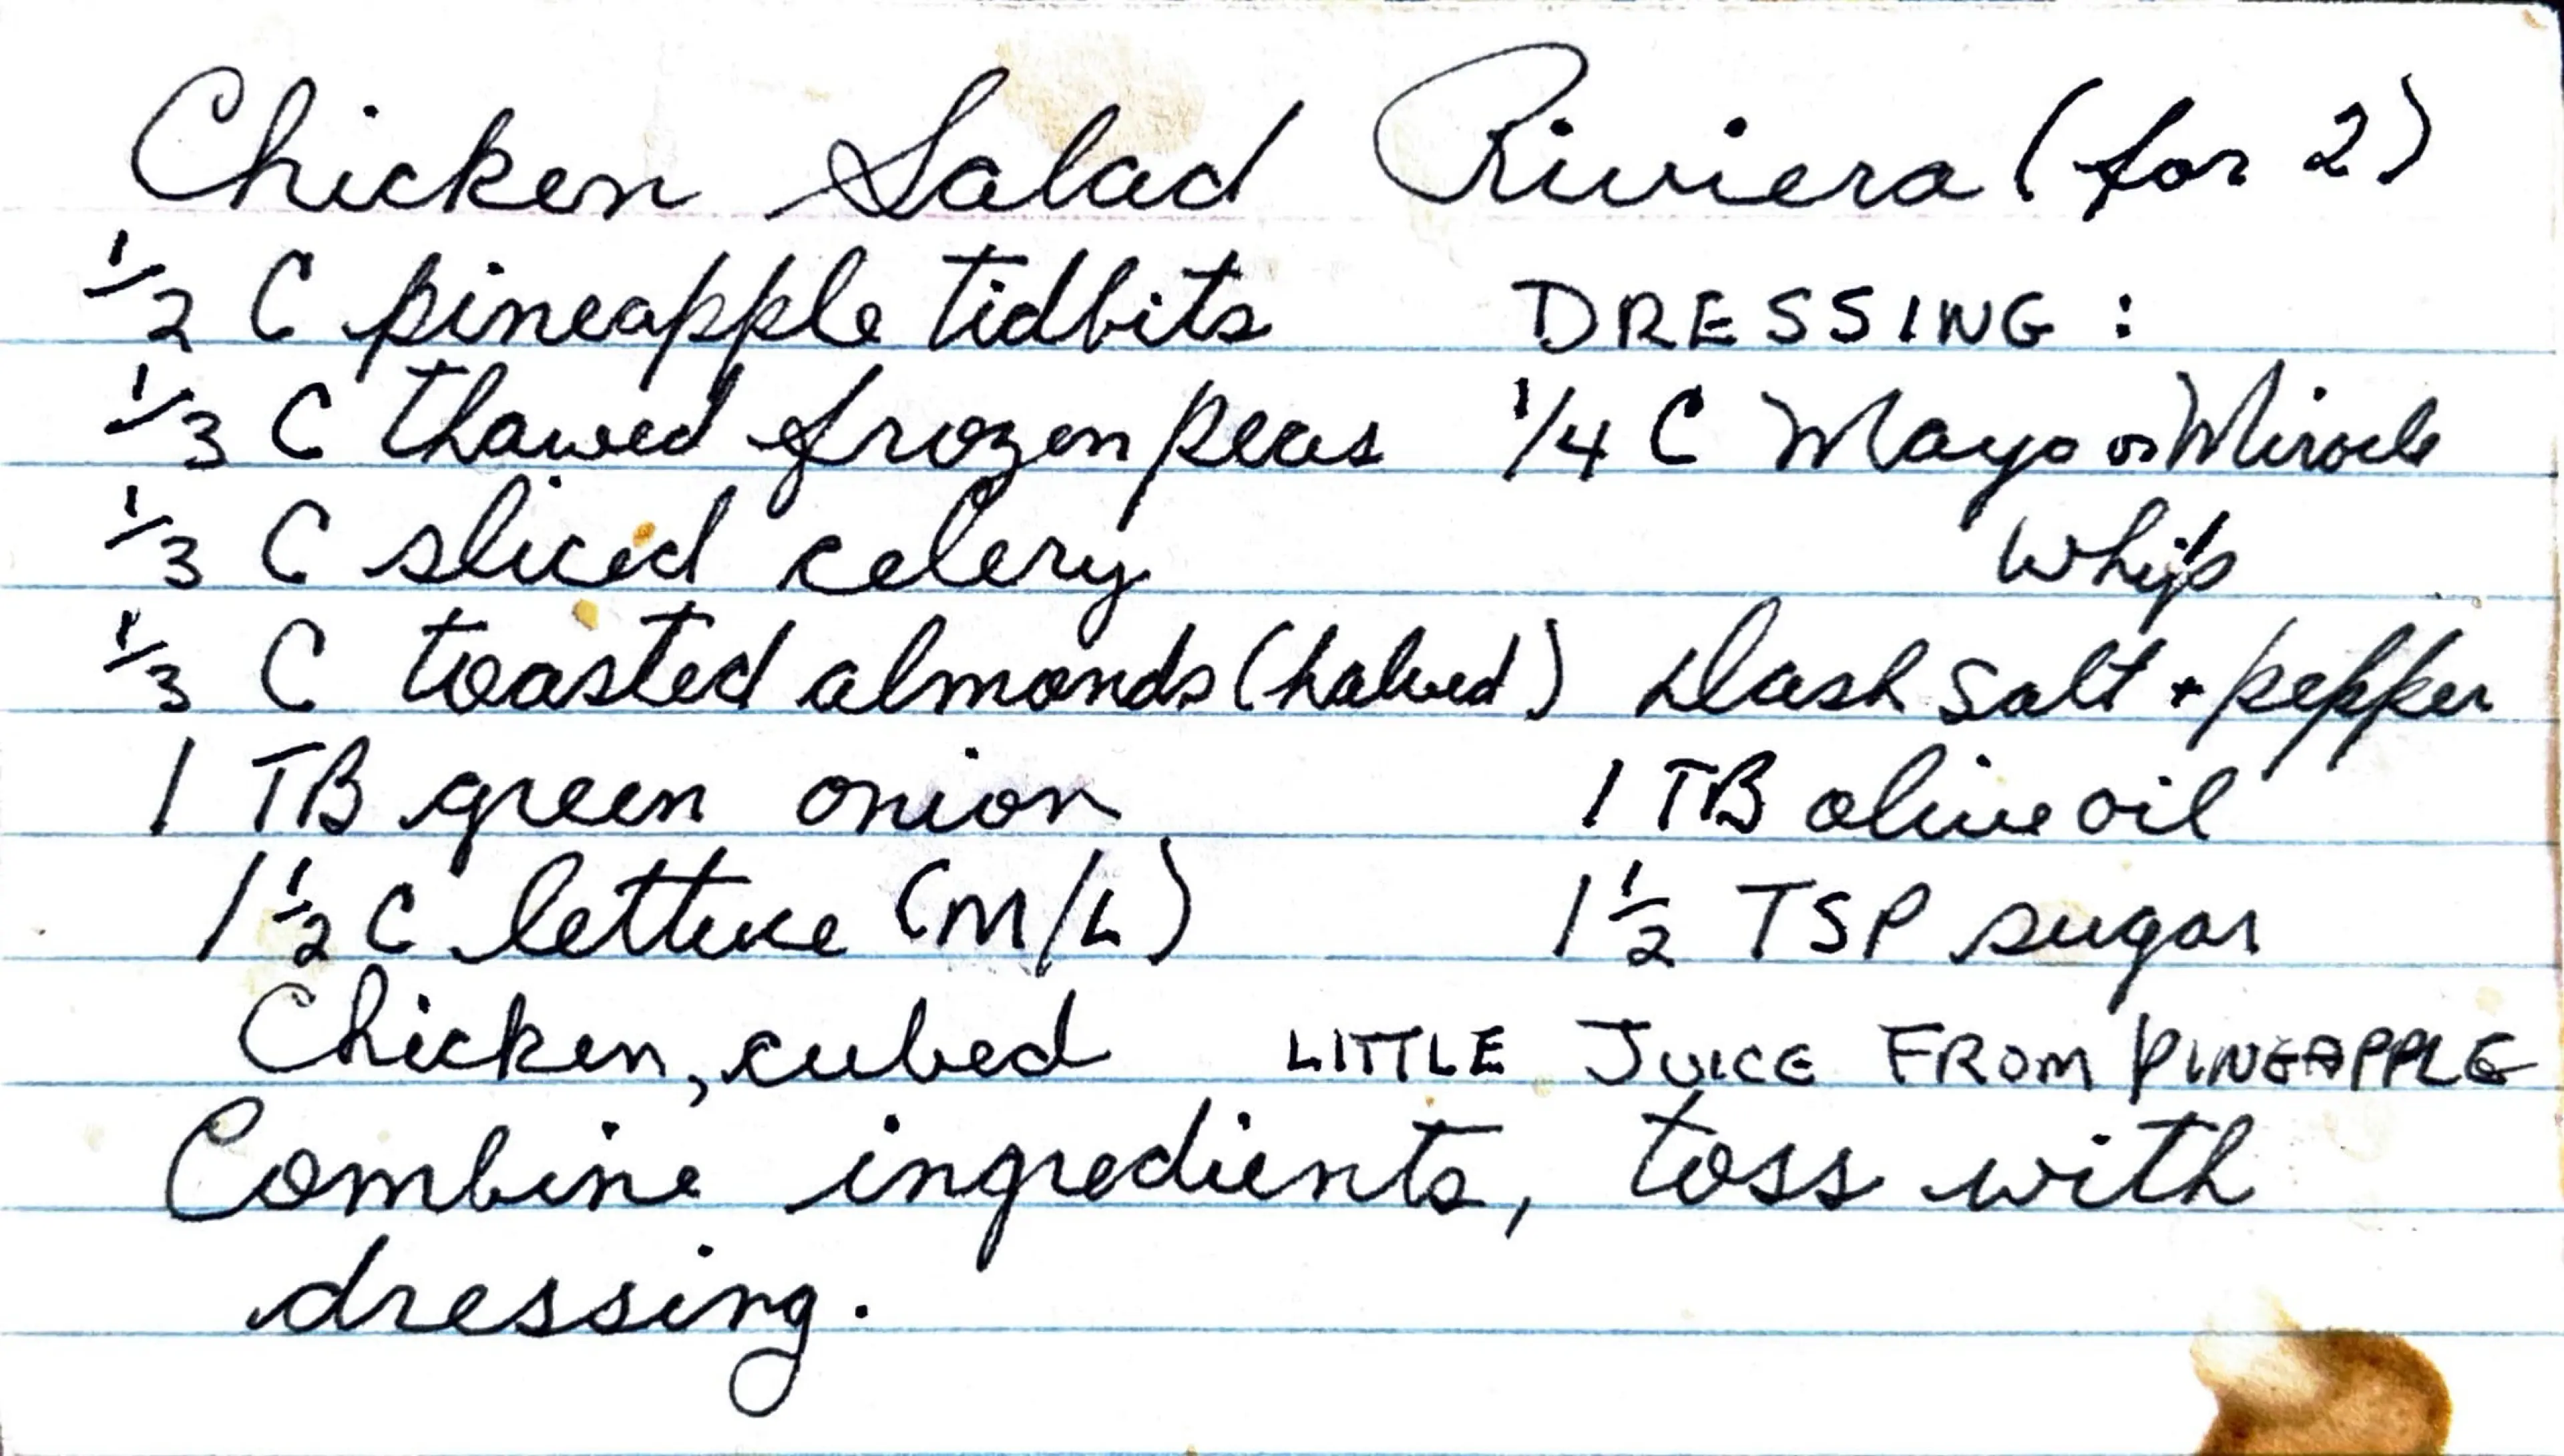 Chicken Salad Riviera (for 2)
1/2 C pineapple tidbits
1/3 C thawed frozen peas
1/3 C sliced celery
1/3 C toasted almonds (halved)
1 TB green onion
1 1/2 C lettuce (M/L)
Chicken, cubed
DRESSING:
1/4 C Mayo or Miracle
Whip
Dash salt + pepper
1 TB olive oil
1 1/2 TSP sugar
LITTLE JUICE FROM PINEAPPLE
Combine ingredients, toss with
dressing.